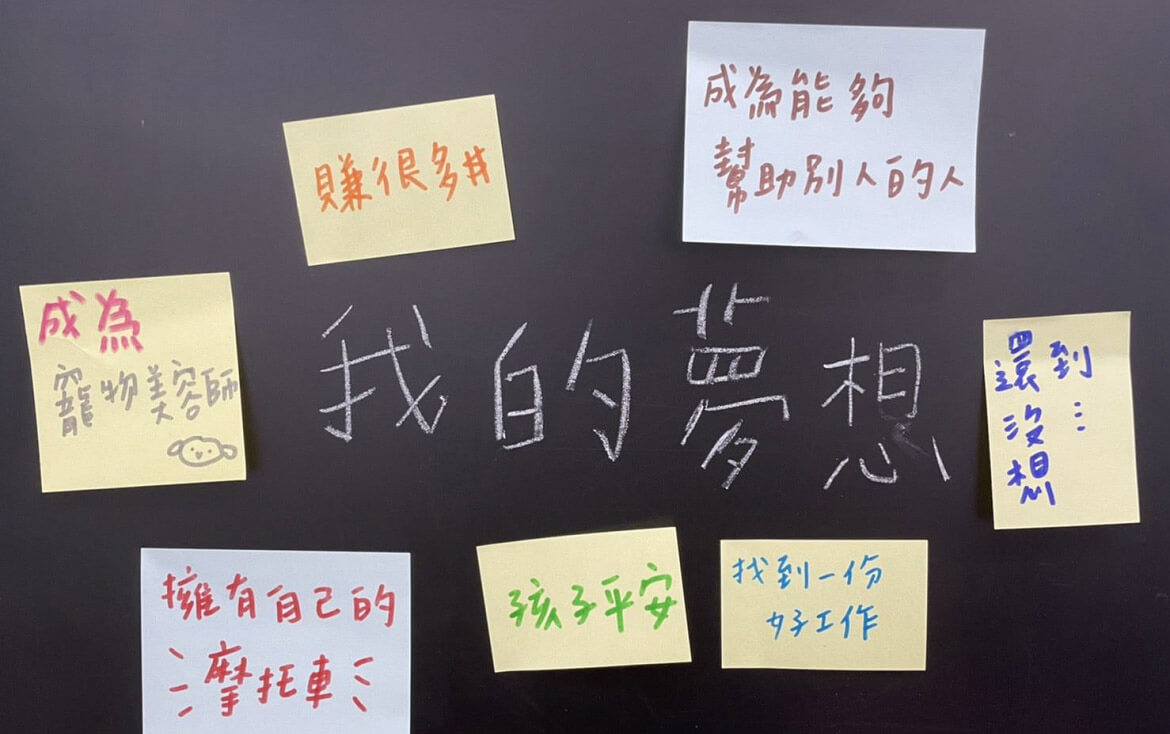 賺很多#
成為能夠
幫助別人的人
成為
寵物美容師
我的夢想
還沒想
到...
擁有自己的
摩托車
孩子平安
找到一份
好工作